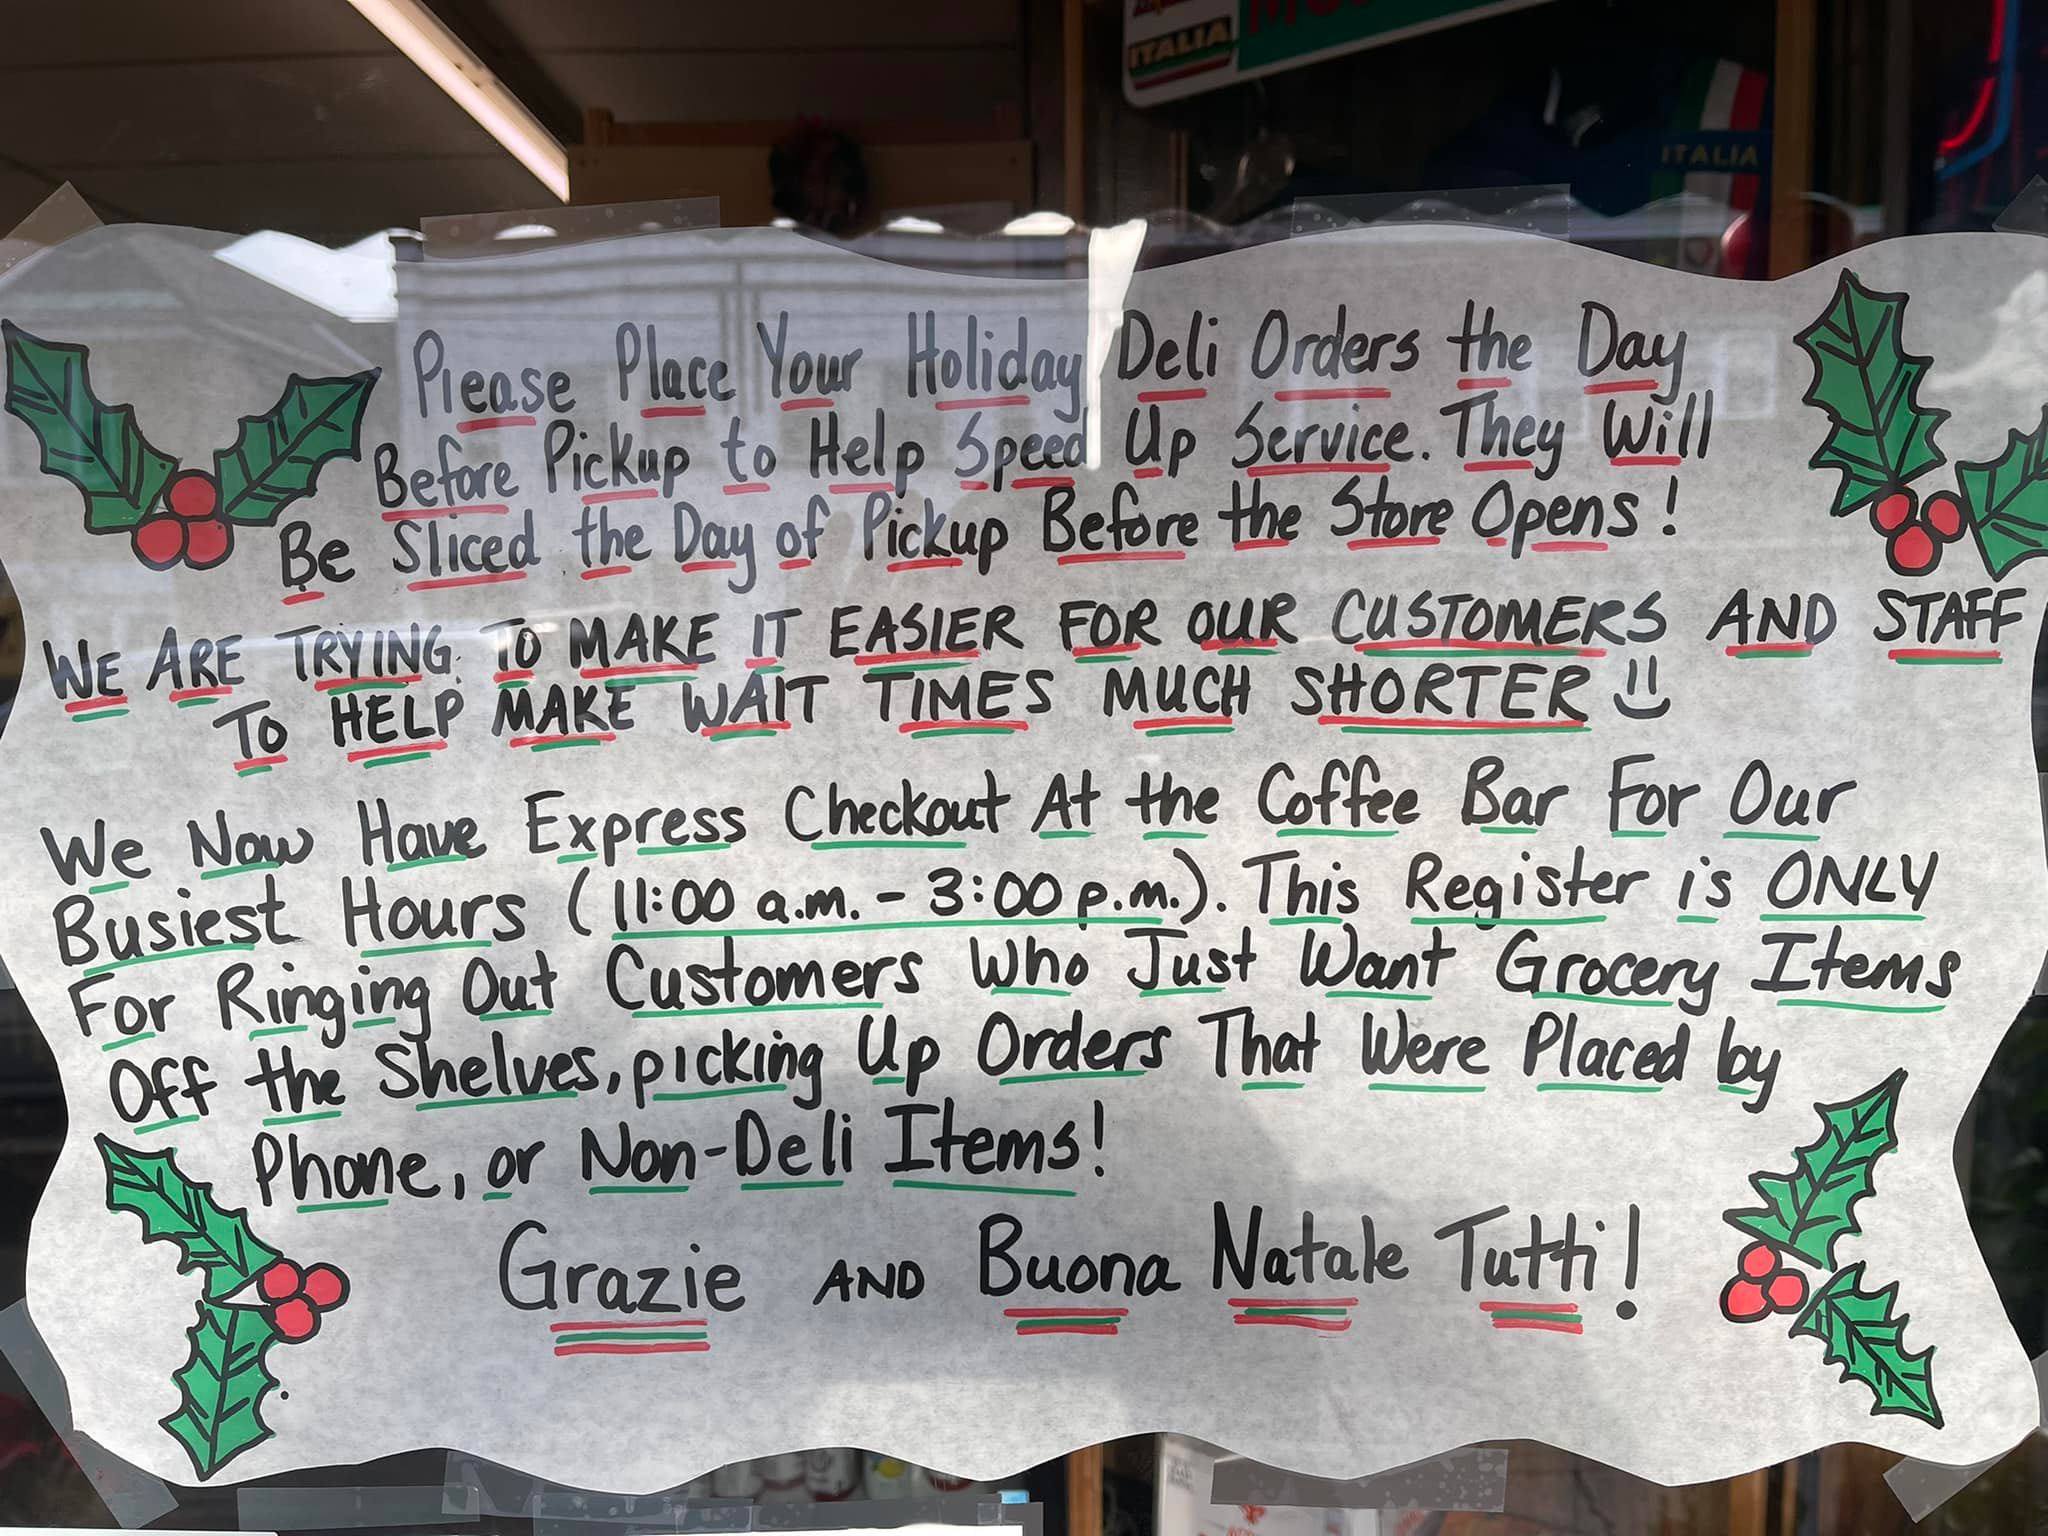 ITALIA
ITALIA
Please Place Your Holiday Deli Orders the Day
Before Pickup to Help Speed Up Service. They Will
Be Sliced the Day of Pickup Before the Store Opens!
WE ARE TRYING TO MAKE IT EASIER FOR OUR CUSTOMERS AND STAFF
TO HELP MAKE WAIT TIMES MUCH SHORTER
We Now Have Express Checkout At the Coffee Bar For Our
Busiest Hours (11:00 a.m. - 3:00 p.m.). This Register is ONLY
For Ringing Out Customers Who Just Want Grocery Items
Off the Shelves, picking Up Orders That Were Placed by
Phone, or Non-Deli Items!
Grazie AND Buona Natale Tutti!